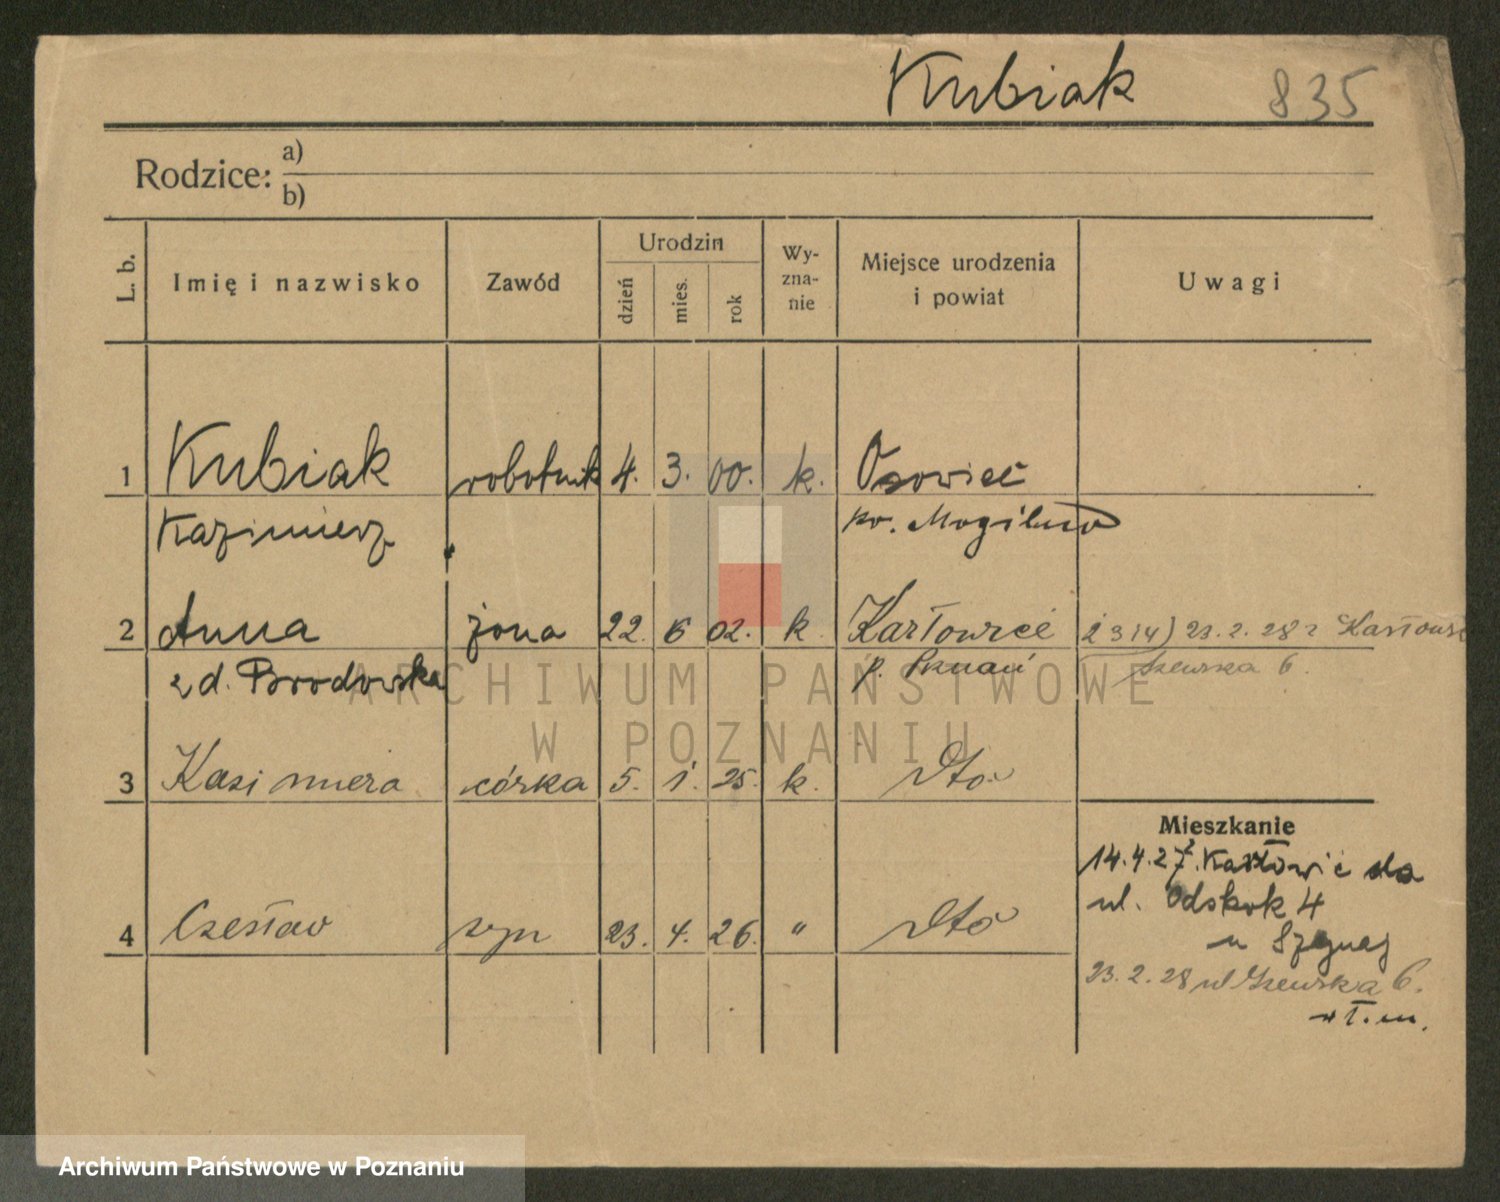 Kubiak 835
Rodzice: a)
b)
L. b. Imię i nazwisko Zawód Urodzin dzień mies. rok Wy-zna-nie Miejsce urodzenia i powiat Uwagi
1 Kubiak robotnik 4. 3. 00. k. Osowiec
Kazimierz pow. Mogilno
2 Anna żona 22. 6 02. k. Karłowice 2 3 i 4) 23. 2. 28 z
z d. Brodowska p. Poznań 6.
3 Kasimiera córka 5. 1. 25. k. dto
Mieszkanie
14.4.27. z Karłowic do
ul. Odskok 4
4 Czesław syn 23. 4. 26. " dto
u
23. 2. 28 ul 6.
w T.m.
ARCHIWUM PAŃSTWOWE
W POZNANIU
Archiwum Państwowe w Poznaniu